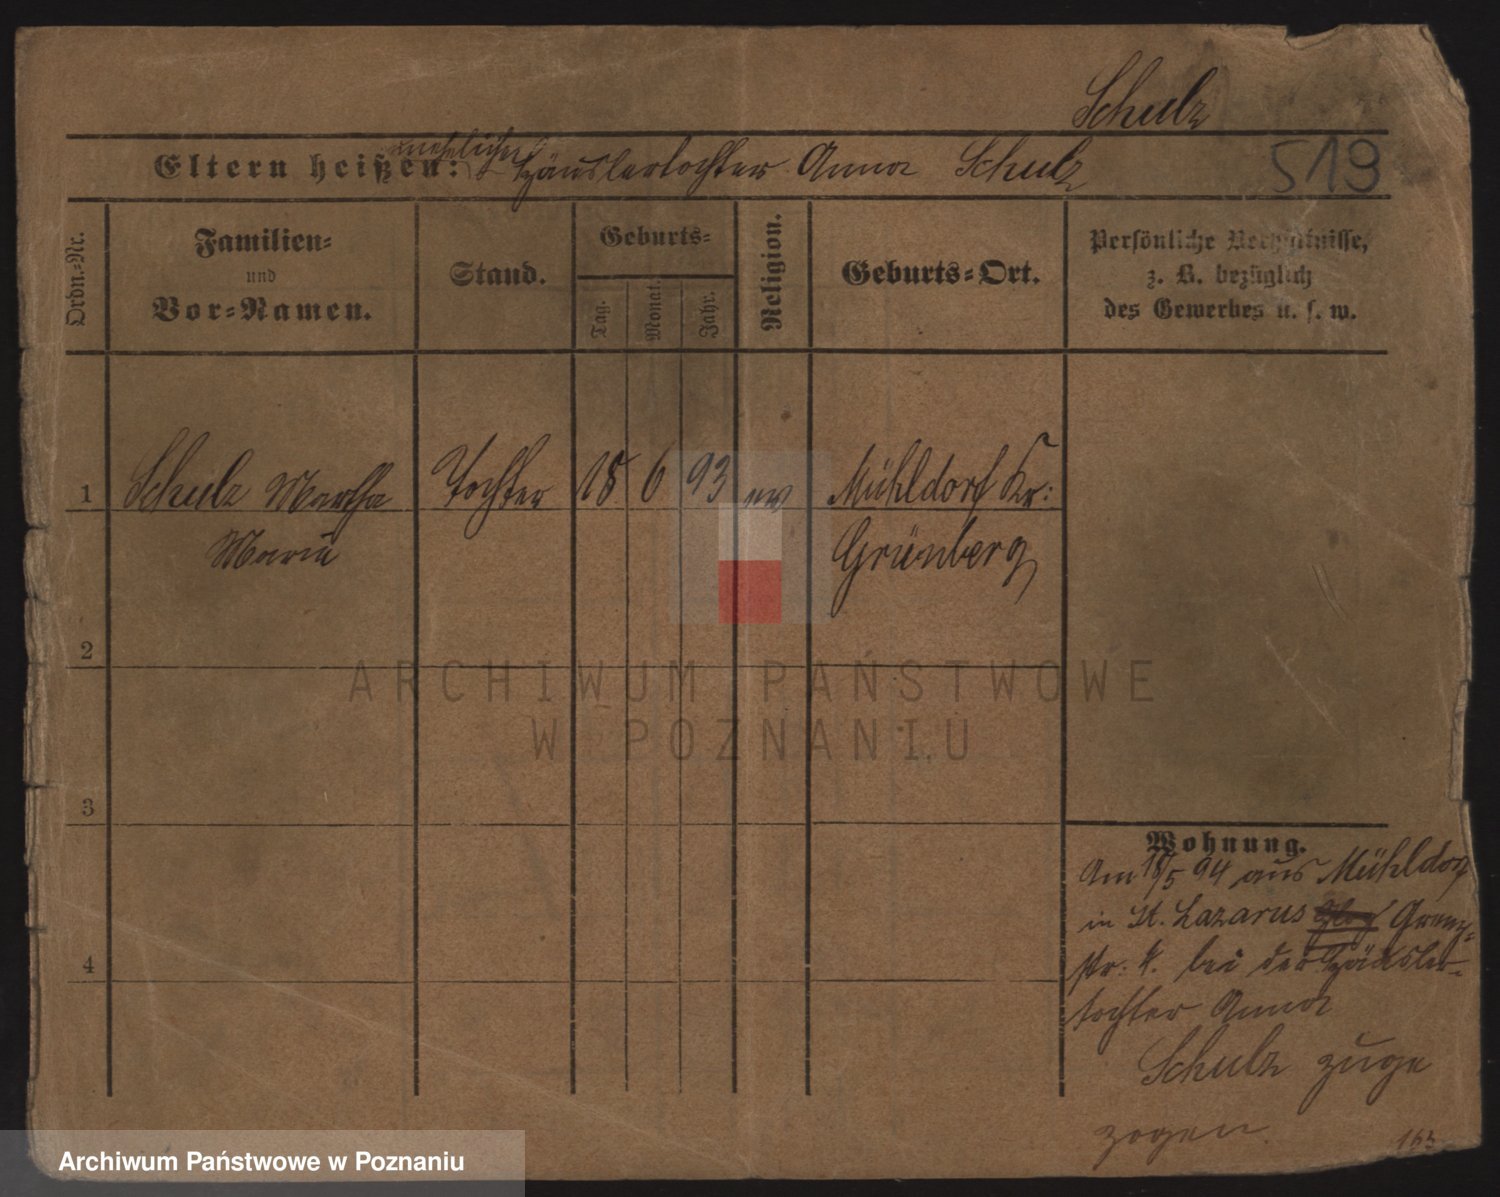 Schulz
Eltern heißen: uneheliche Häuslertochter Anna Schulz 519
Ordn.-Nr.
Familien-
und
Vor-Namen.
Stand.
Geburts-
Tag.
Monat.
Jahr.
Religion.
Geburts-Ort.
Persönliche Verhältnisse,
z. B. bezüglich
des Gewerbes u. s. w.
1 Schulz Martha Tochter 18 6 93 ev Mühldorf Kr:
Marie Grünberg
2
3
4
Wohnung.
Am 18/5 94 aus Mühldorf
in St. Lazarus Grenz-
str: 4. bei der Häusler-
tochter Anna
Schulz zuge
zogen.
163
ARCHIWUM PAŃSTWOWE
W POZNANIU
Archiwum Państwowe w Poznaniu